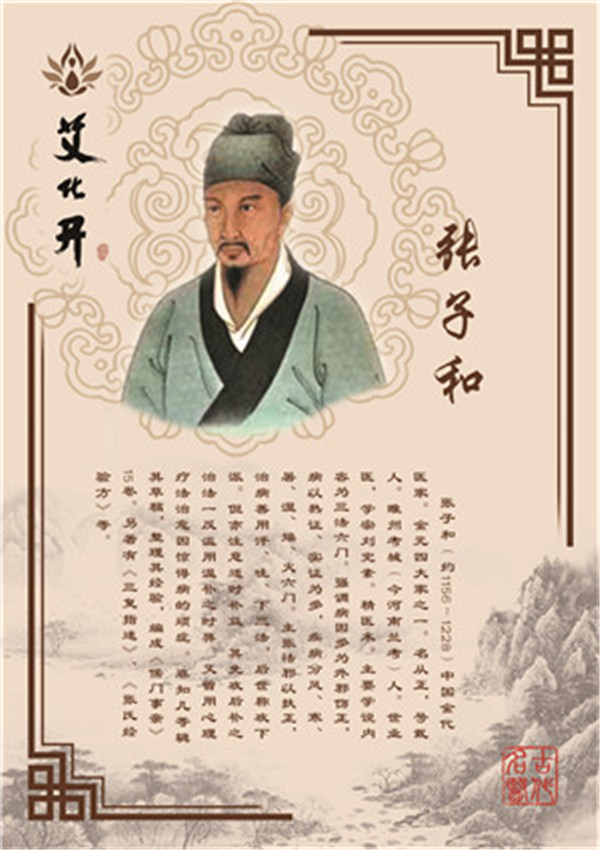 艾化开
张子和
张子和（约1156～1228）中国金代
医家。金元四大家之一。名从正，号戴
人。睢州考城（今河南兰考）人。世业
医，学宗刘完素。精医术。主要学说内
容为三法六门。强调病因多为外邪伤正，
病以热证、实证为多，疾病分风、寒、
暑、湿、燥、火六门。主张祛邪以扶正，
治病善用汗、吐、下三法，后世称攻下
派。但亦注意适时补益，其先攻后补之
治法一反滥用温补之时弊。又曾用心理
疗法治愈因惊得病的顽症。麻知几等辑
其草稿，整理其经验，编成《儒门事亲》
15卷。另著有《三复指迷》、《张氏经
验方》等。
古代名医